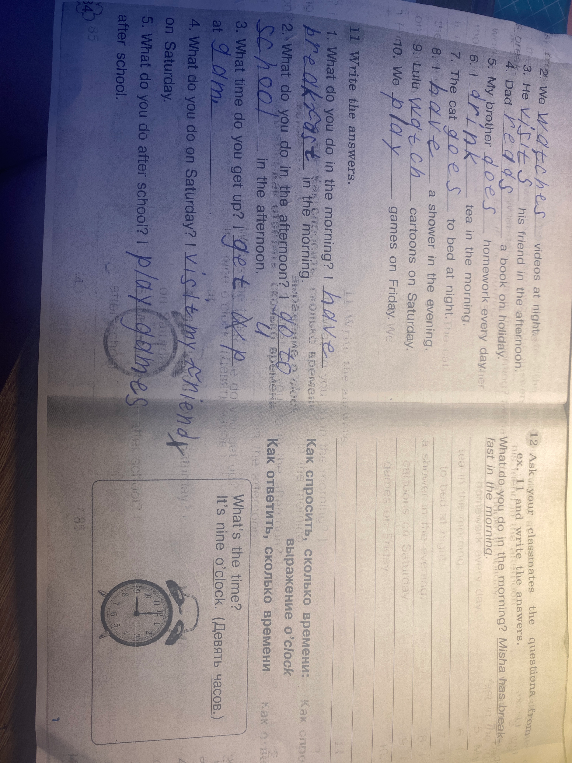 2. We watches videos at night.
3. He visits his friend in the afternoon.
4. Dad reads a book on holiday.
5. My brother does homework every day.
6. I drink tea in the morning.
7. The cat goes to bed at night.
8. I have a shower in the evening.
9. Lulu watch cartoons on Saturday.
10. We play games on Friday.
11 Write the answers.
1. What do you do in the morning? I have
breakfast in the morning.
2. What do you do in the afternoon? I go to
school in the afternoon.
3. What time do you get up? I get up
at
4. What do you do on Saturday? I visit my friend
on Saturday.
5. What do you do after school? I play games
after school.
12 Ask your classmates the questions from
ex. 11 and write the answers.
What do you do in the morning? Misha has break-
fast in the morning.
Как спросить, сколько времени:
выражение o'clock
Как ответить, сколько времени
What's the time?
It's nine o'clock. (Девять часов.)